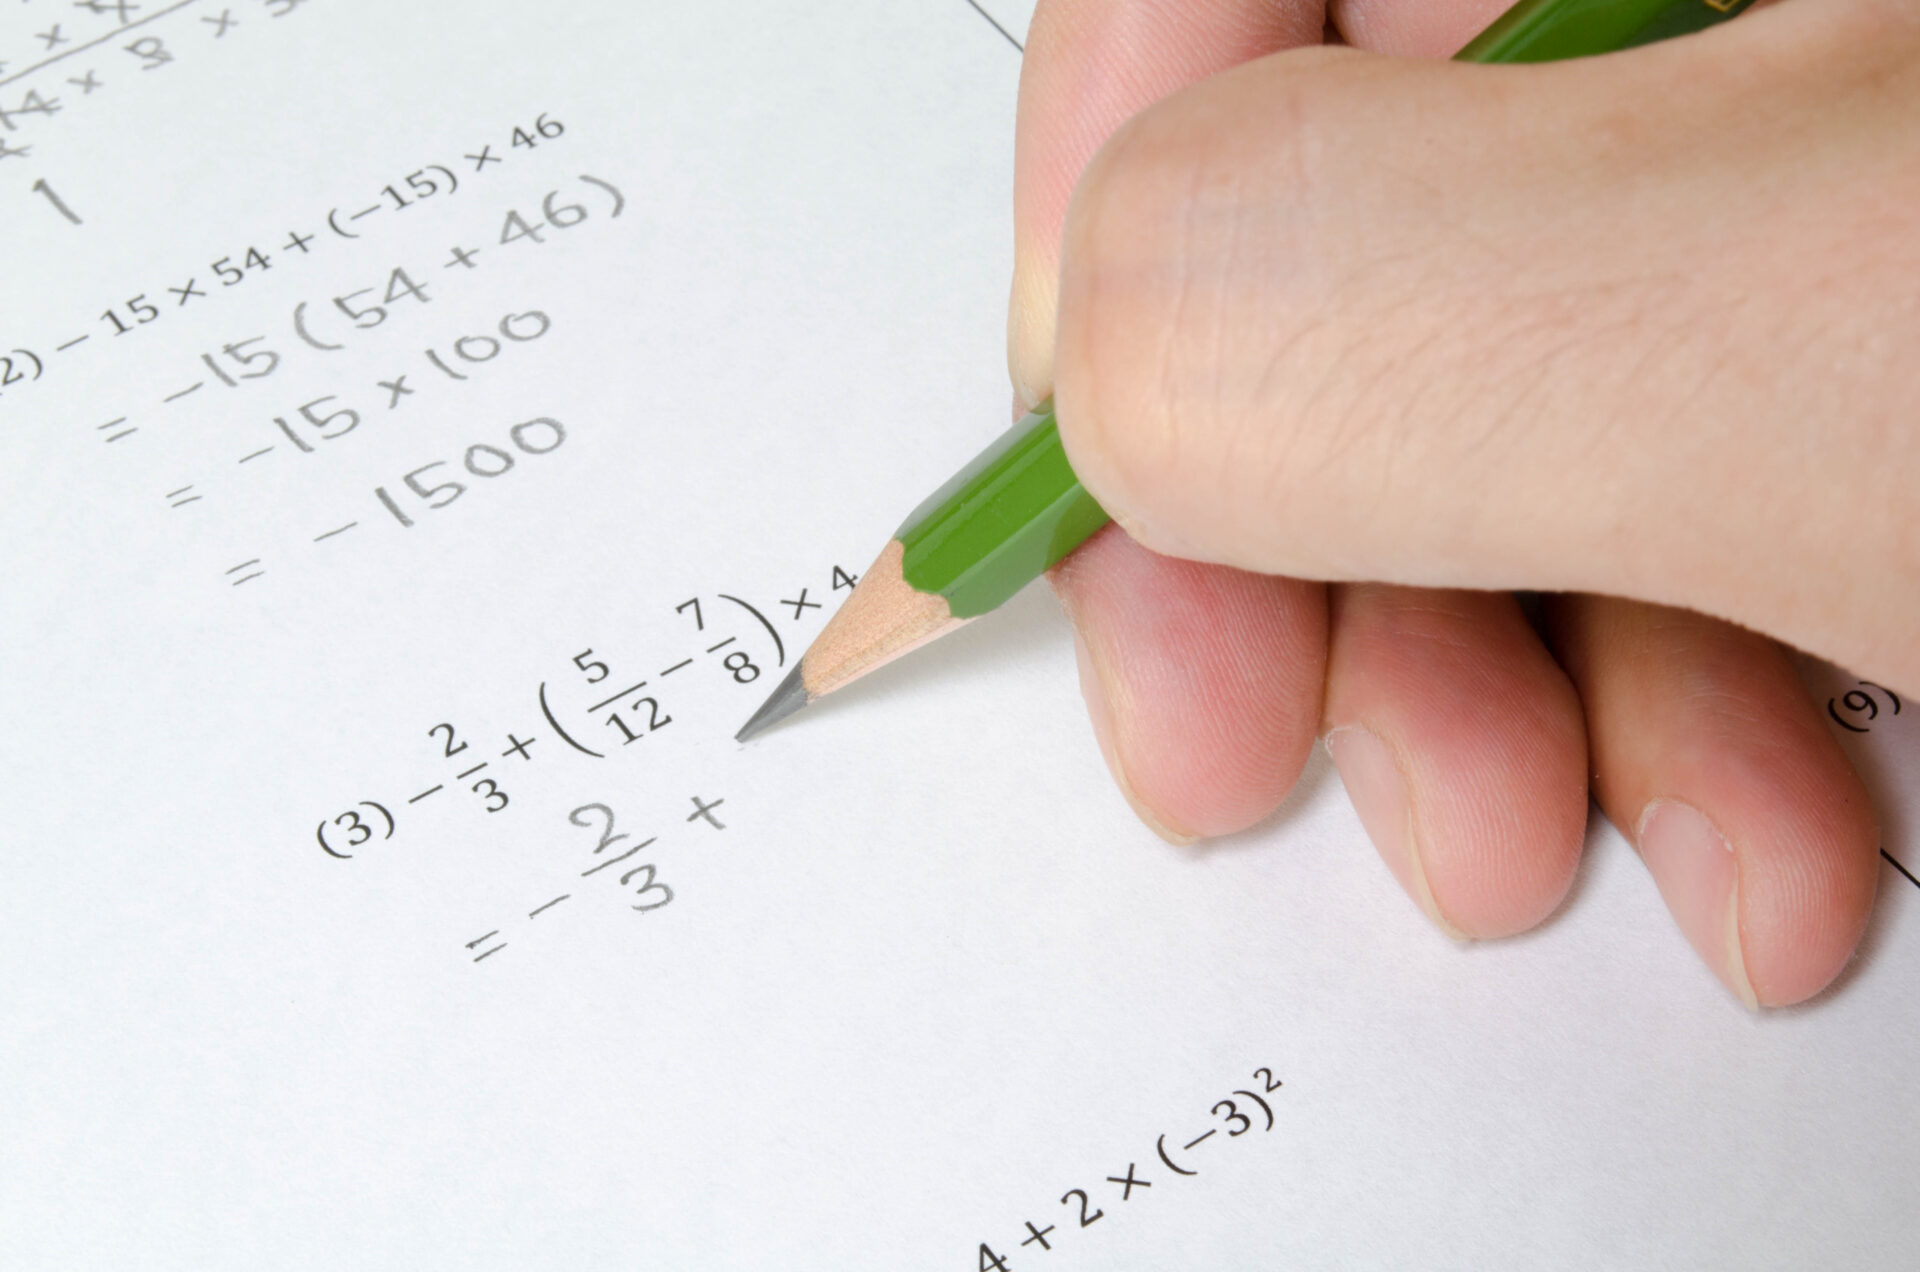 × 8 ×
1
2) − 15 × 54 + (−15) × 46
= −15 ( 54 + 46 )
= −15 × 100
= −1500
(3) − 2/3 + (5/12 − 7/8) × 4
= − 2/3 +
4 + 2 × (−3)²
(9)